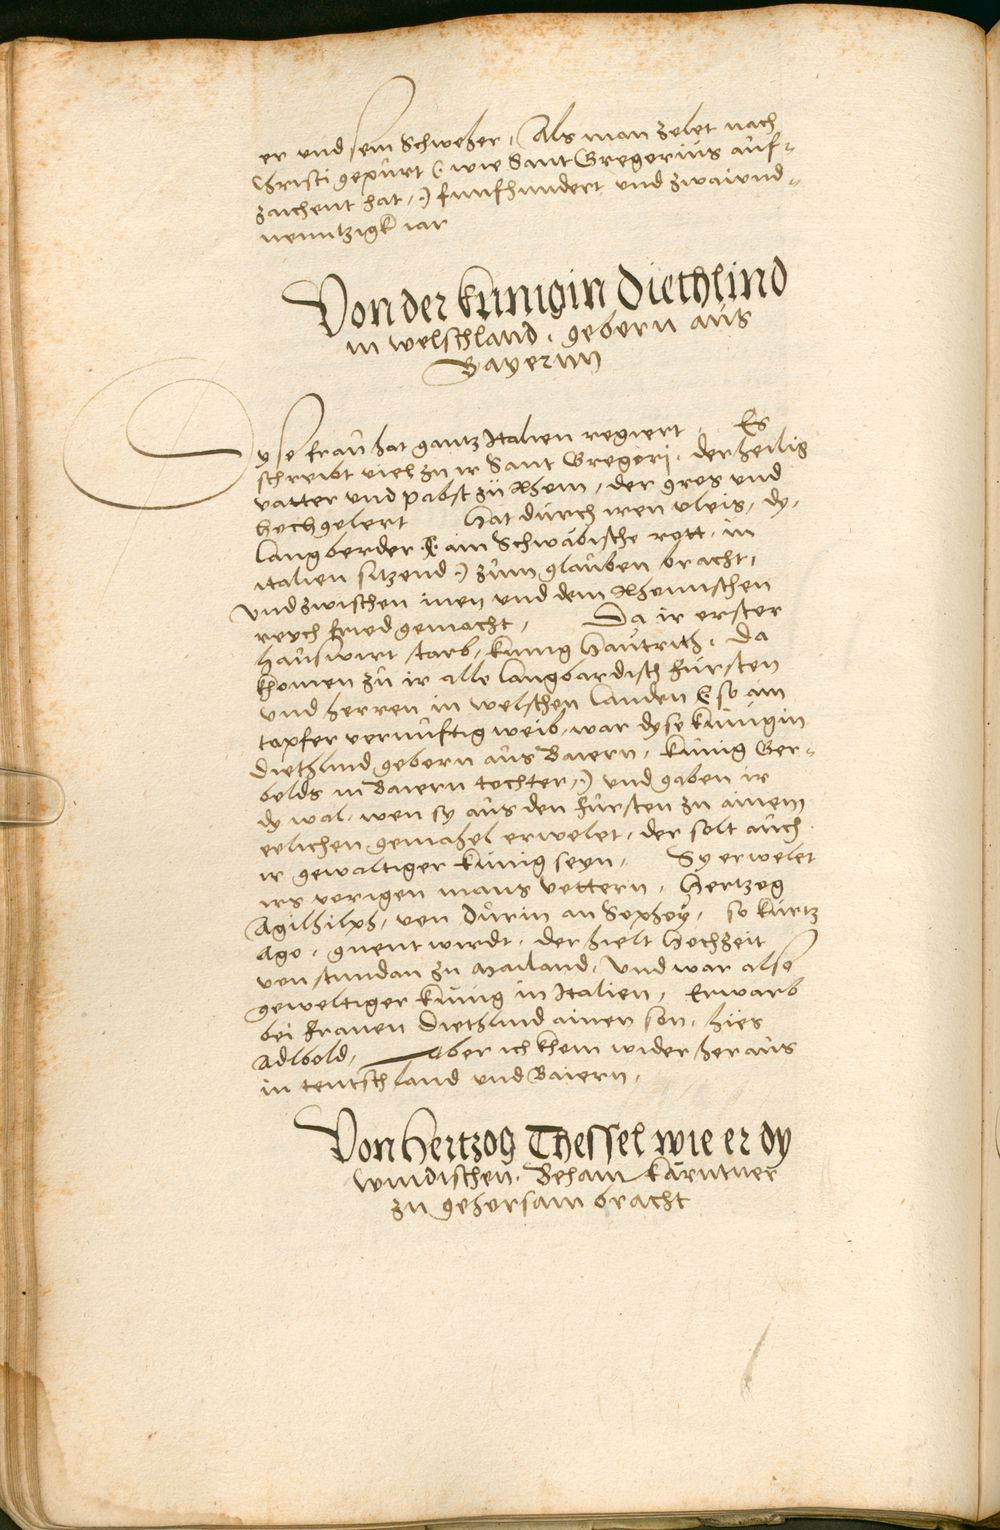 er und sein Schweher, Als man zelet nach
Christi gepurt (: wie Sant Gregorius auf-
zaichent hat, :) funfhundert und zwaiund-
neuntzigk iar
Von der kunigin Diethlind
in welschland, gebern aus
Bayernn
Dyse frau hat gantz Italien regiert, Es
schreibt viel zu ir Sant Gregori, der heilig
vatter und pabst zu Rhom, der gros und
hochgelert Hat durch iren vleis, dy,
langberder (: ain Schwäbische rott, in
italien sitzend :) zum glauben bracht,
und zwischen inen und dem Rhomischen
reych fried gemacht, Da ir erster
hauswirt starb, kunig Hautrith, Da
khomen zu ir alle langbardisch fursten
und herren in welschen landen (: so ain
tapfer vernunftig weib, war dyse kunigin
Diethlind gebern aus Baiern, kunig Ger-
bolds in Baiern tochter, :) und gaben ir
dy wal, wen sy aus den fursten zu ainem
eelichen gemahel erwelet, der solt auch
ir gewaltiger kunig seyn, Sy erwelet
irs vorigen mans vettern, Hertzog
Agilhilph, von Durin an Sophey, so kurtz
Ago, gnent wirdt, der hielt Hochzeit
von stundan zu Mailand, Und war also
geweltiger kunig in Italien, Erwarb
bei frauen Diethlind ainen son, hies
Adlbold, Aber ich khom wider heraus
in teutschland und Baiern,
Von Hertzog Thessel wie er dy
windischen, Beham kärntner
zu gehorsam bracht